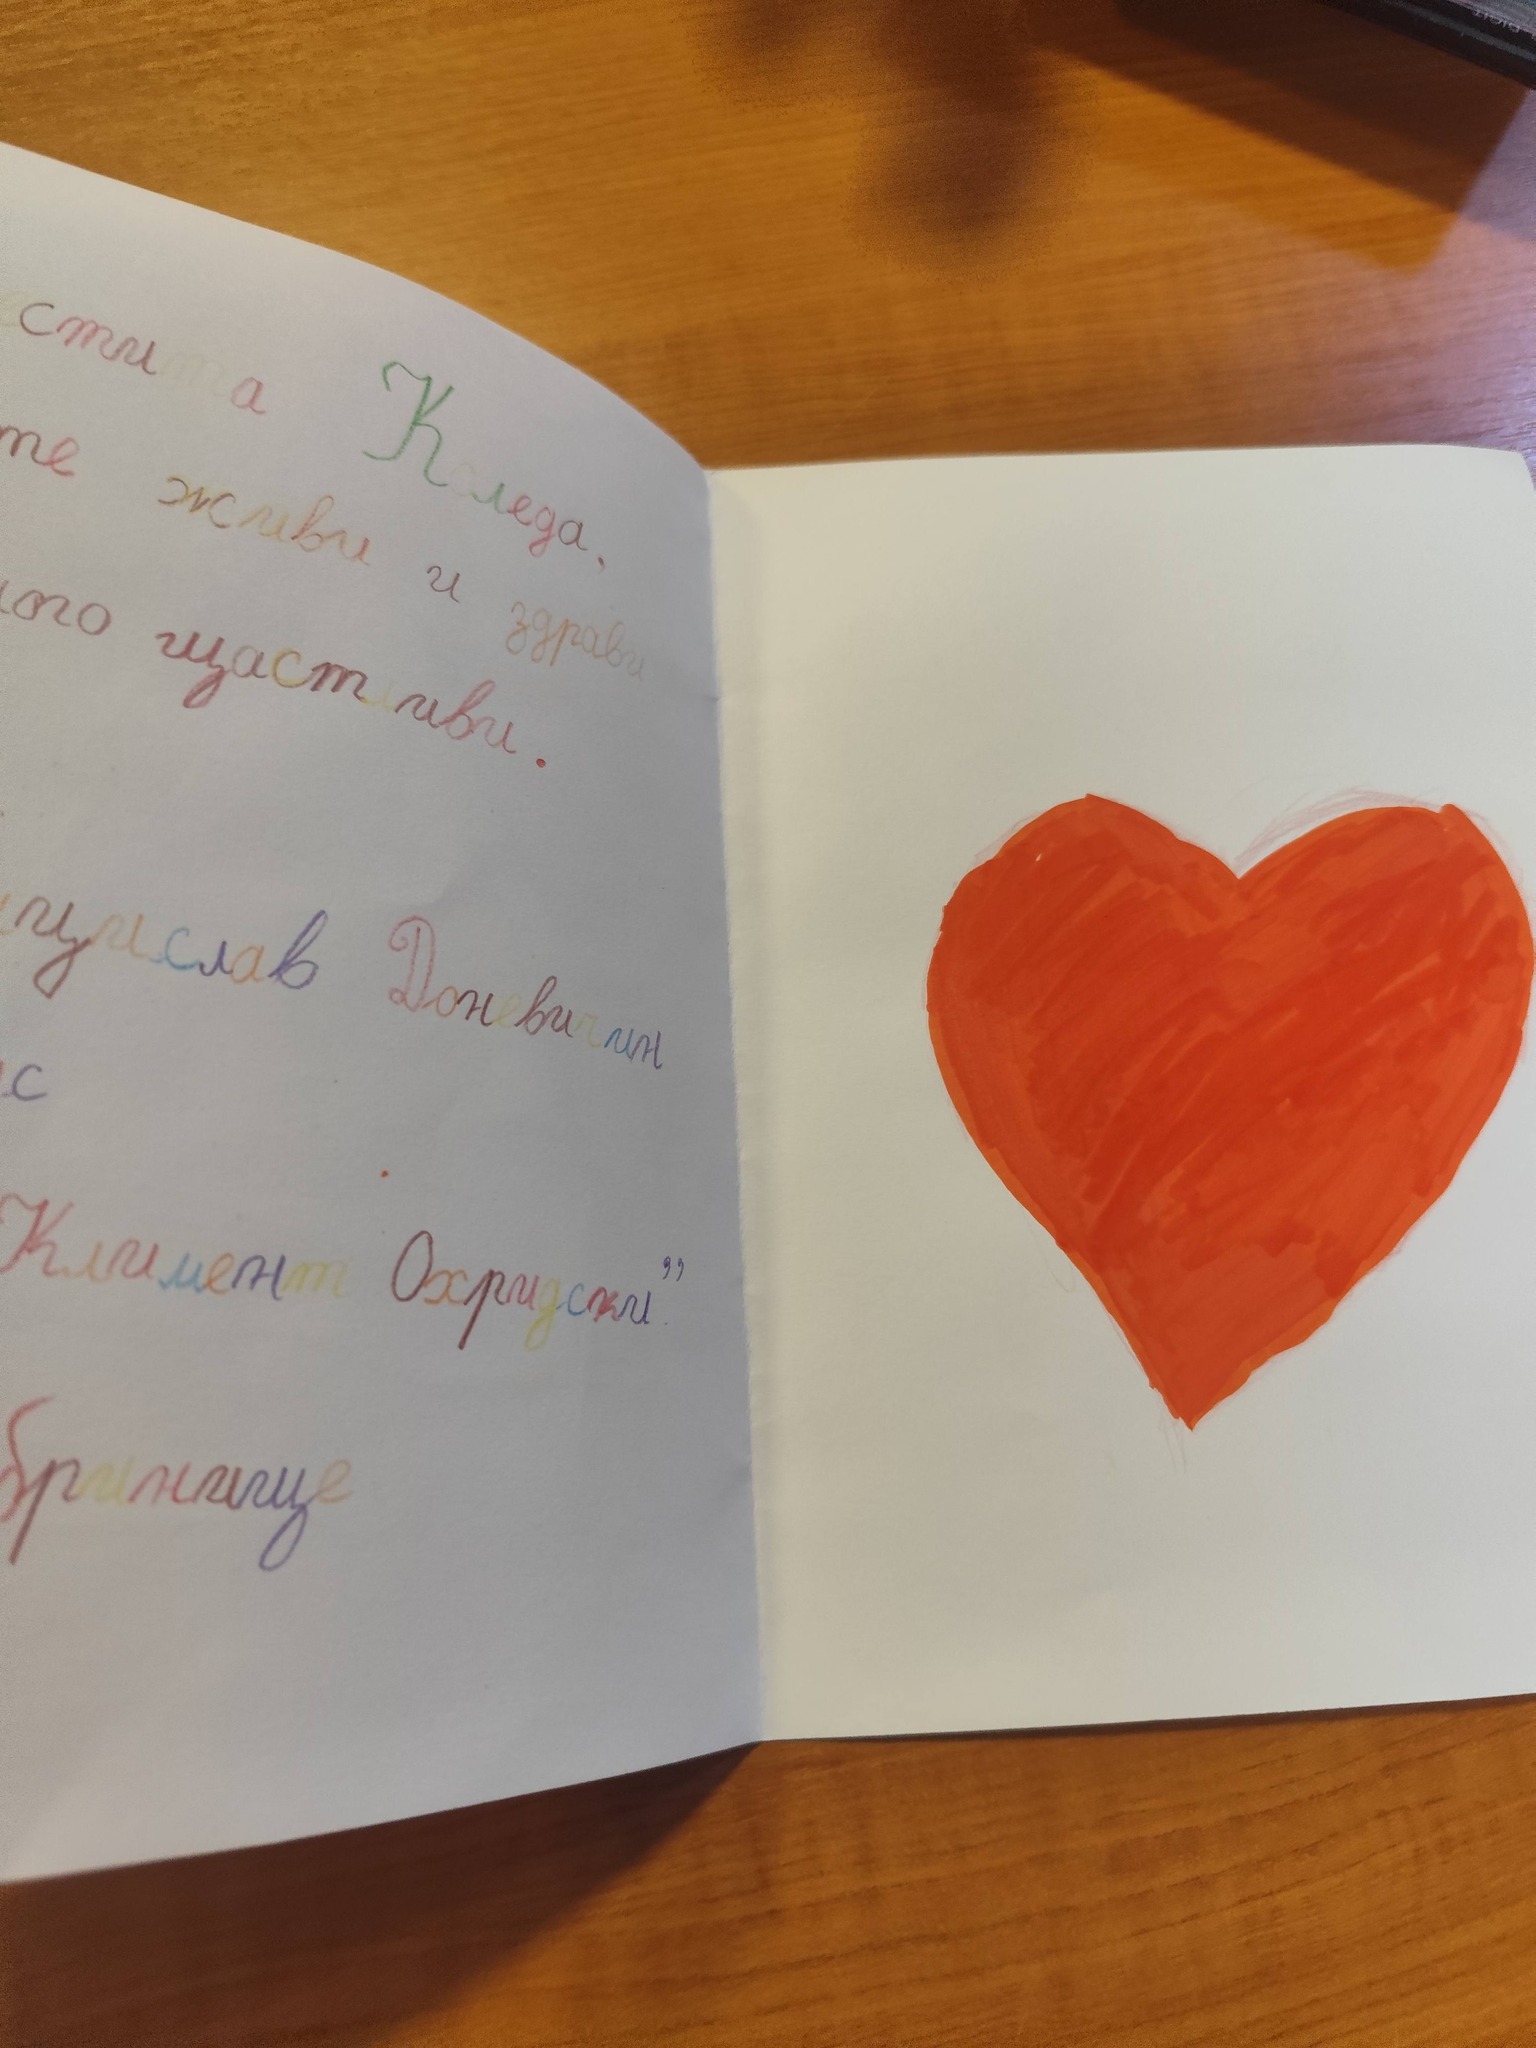 стита Коледа.
те живи и здрави
ого щастливи.
ициислав Доневичин
с
Климент Охридски"
бринище